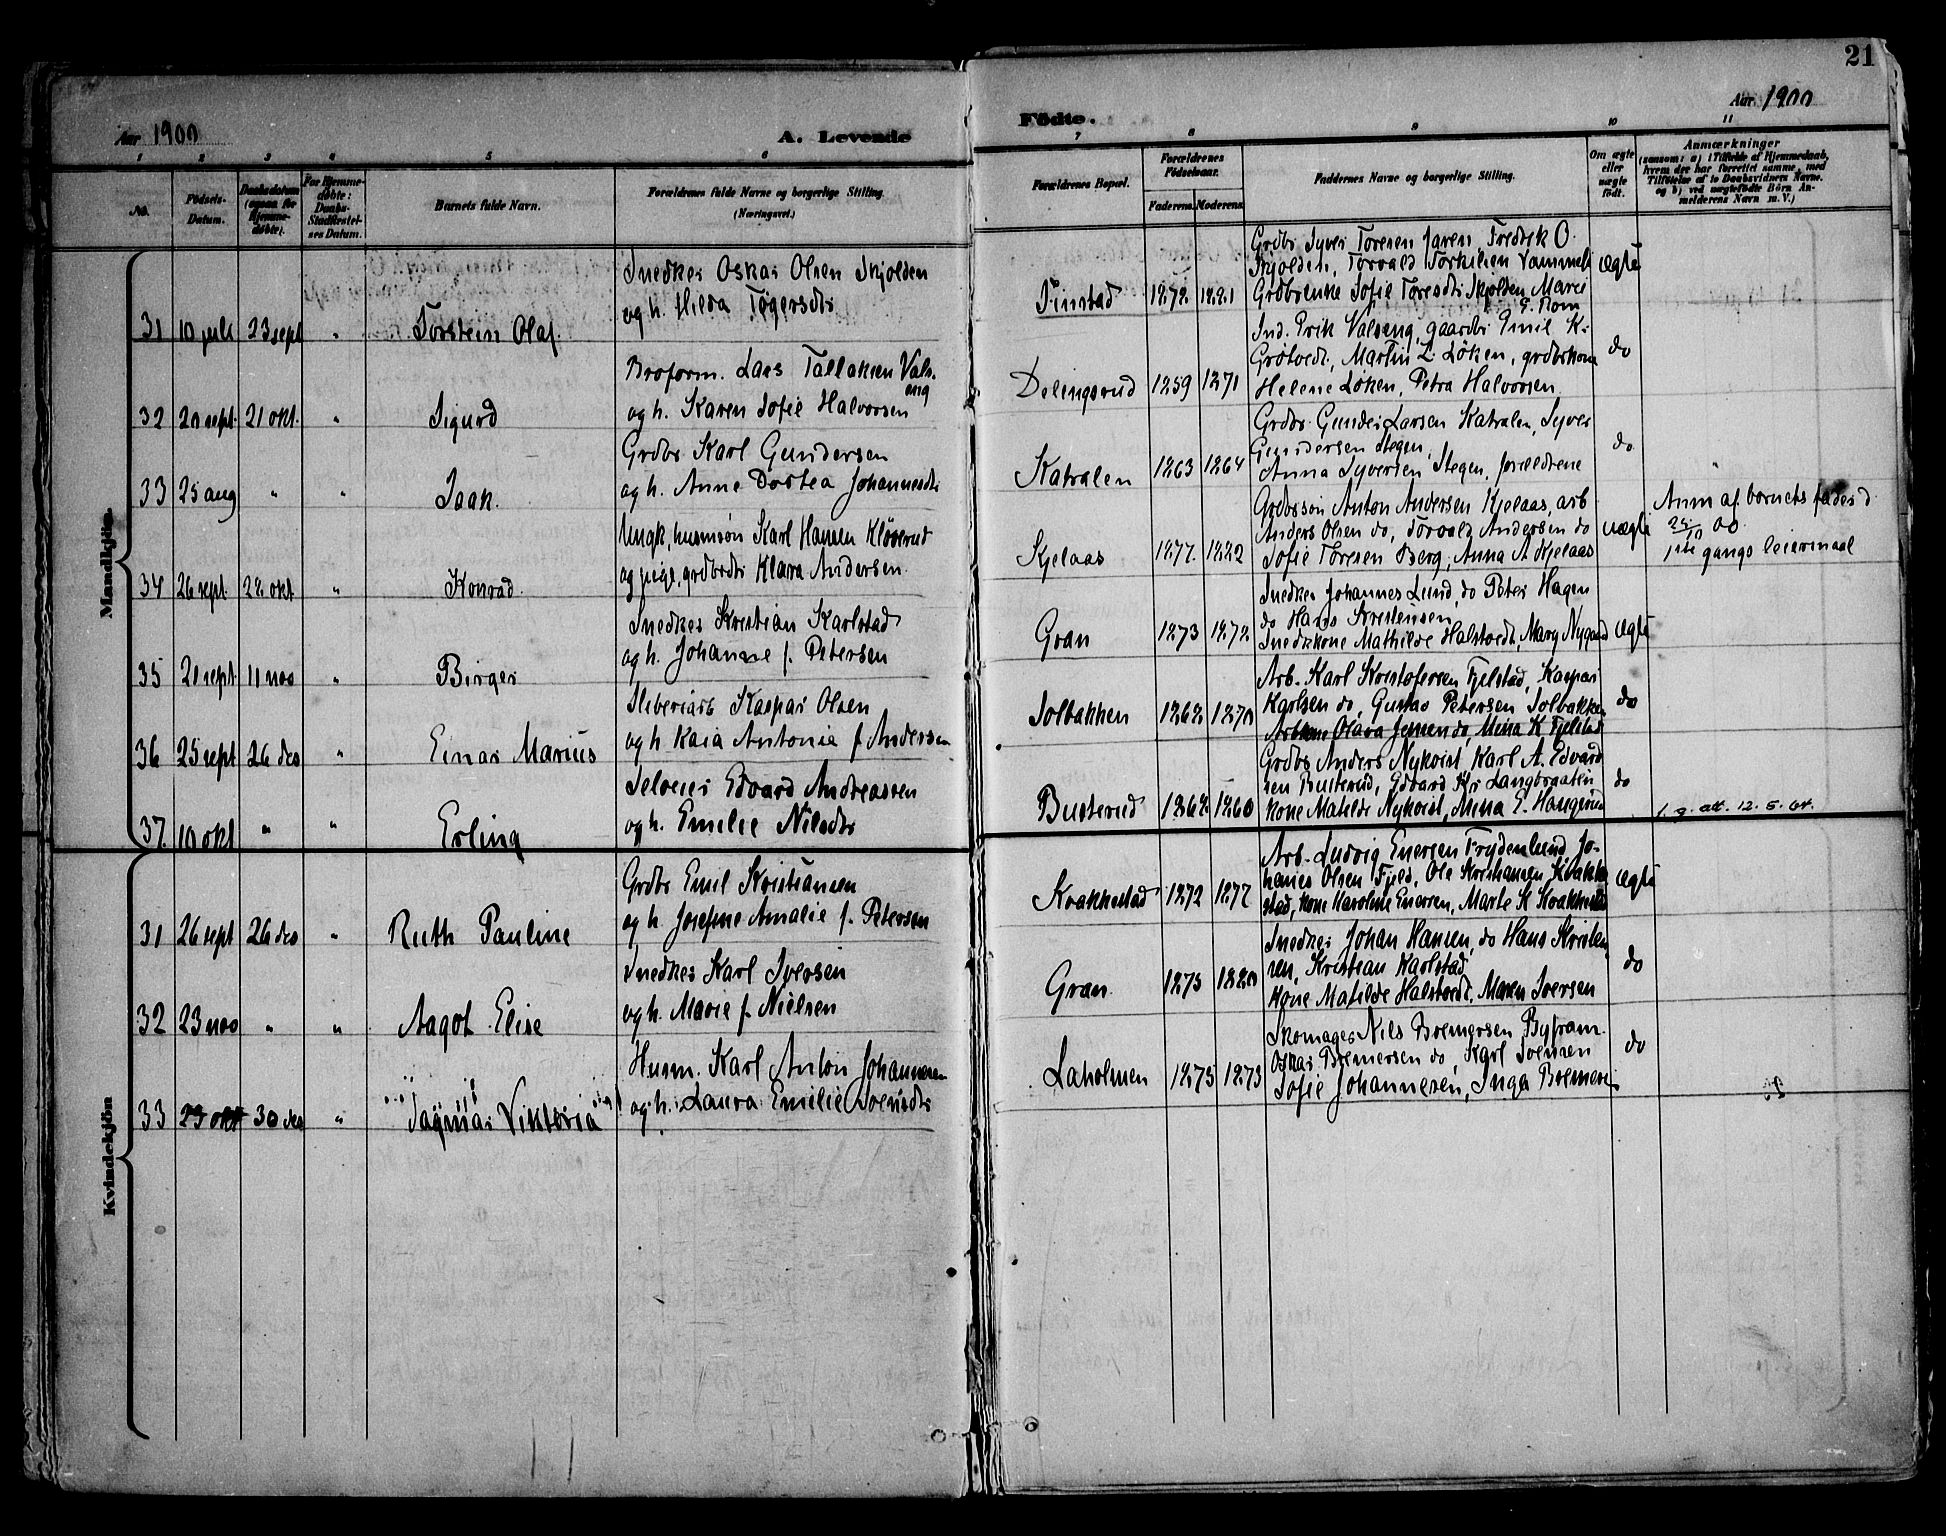 21
Aar 1900
A. Levende
Fødte.
Aar 1900
1 2 3 4 5 6 7 8 9 10 11
No.
Fødsels-Datum.
Daabsdatum (ogsaa for Hjemmedøbte).
For Hjemmedøbte: Daabs-Stadfæstelses Datum.
Barnets fulde Navn.
Forældrenes fulde Navne og borgerlige Stilling. (Næringsvei.)
Forældrenes Bopæl.
Forældrenes Fødselsaar.
Faderens. Moderens.
Faddernes Navne og borgerlige Stilling.
Om ægte eller uægte født.
Anmærkninger
(saasom: a) i Tilfælde af Hjemmedaab, hvem der har forrettet samme, med Tilføielse af to Daabsvidners Navne, og b) ved uægtefødte Børn Anmelderens Navn m. V.)
Mandkjøn.
31 10 juli 23 sept " Torstein Olaf.
Snedker Oskar Olsen Skjolden
og h. Hilda Tøgersdtr
Finstad 1872 1881
Grdbr Syver Toresen Jaren, Fredrik O.
Skjolden, Torvald Torkilsen Vammeli
Grdbrenke Sofie Toresdtr Skjolden, Marei
G. Rom
ægte
32 20 sept. 21 okt. " Sigurd
Broform. Lars Tallaksen Vals-
eng
og h. Karen Sofie Halvorsen
Delingsrud 1859 1871
Ind. Erik Valseng, gaardbr Emil K.
Grøtvedt, Martin L. Løken, grdbrkone
Helene Løken, Petra Halvorsen
do
33 25 aug " " Isak.
Grdbr Karl Gundersen
og h. Anne Dortea Johannesdtr
Katralen 1863 1864
Grdbr Gunder Larsen Katralen, Syver
Gundersen Stegen,
Anna Syversen Stegen, forældrene
do
"
34 26 sept. 28 okt. " Konrad.
Ungk, husmsøn Karl Hansen Kløverud
og pige, grdbrdtr Klara Andersen
Kjelaas 1877. 1882
Grdbrsøn Anton Andersen Kjelaas, arb
Anders Olsen do, Torvald Andersen do
Sofie Toresen Berg, Anna A Kjelaas
uægte
Anm af barnets fader d.
25/10 00.
1ste gangs leiermaal
35 21 sept 11 nov " Birger
Snedker Kristian Karlstad
og h. Johanne f. Petersen
Gran 1873 1872
Snedker Johannes Lund, do Peter Hagen
do Hans Kristensen
Snedkkone Mathilde Halstvedt, Mary Nygaard
ægte
36 25 sept 26 des " Einar Marius
Sliberiarb Kaspar Olsen
og h Kaia Antonie f. Andersen
Solbakken 1862 1870
Arb. Karl Kristofersen Fjelstad, Kaspar
Karlsen do, Gustav Petersen Solbakken
Arbkone Olava Jensen do, Mina K Fjelstad
do
37. 10 okt " " Erling
Selveier Edvard Andreassen
og h. Emilie Nilsdtr
Busterud 1862 1860
Grdbr Anders Nykvist, Karl A. Edvard
sen Busterud, Edvard Kr Langbraaten
kone Matilde Nykvist, Mina E. Haugerud
do
1. g. att. 12.5.64.
Kvindekjøn
31 26 sept 26 des " Ruth Pauline
Grdbr Emil Kristiansen
og h. Josefine Amalie f. Petersen
Krakkestad 1872 1877
Arb. Ludvig Enersen Frydenlund, Jo-
hanes Olsen Fjeld, Ole Kristiansen Krakke
stad, kone Karoline Enersen, Marte K Krakkestad
ægte
32 23 nov " " Aagot Elise
Snedker Karl Iversen
og h. Marie f. Nielsen
Gran. 1875 1880
Snedker Johan Hansen, do Hans Kristen
sen, Kristian Karlstad
kone Matilde Halstvedt, Maren Iversen
do
33 29 okt 30 des " Dagmar Viktoria
Husm. Karl Anton Johannesen
og h. Laura Emilie Svensdtr
Laholmen 1873 1873
Skomager Nils Bremersen Byfram.
Oskar Bremersen do Karl Svensen
Sofie Johannesen, Inga Bremers
do